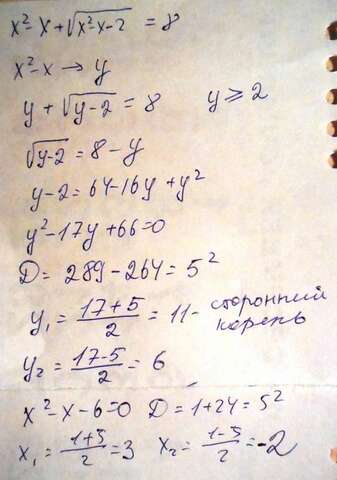 x²-x+√(x²-x-2) = 8
x²-x → y
y+√(y-2) = 8    y ⩾ 2
√(y-2) = 8-y
y-2 = 64-16y+y²
y²-17y+66=0
D = 289-264= 5²
y₁ = (17+5)/2 = 11 - сторонний корень
y₂ = (17-5)/2 = 6
x²-x-6=0 D = 1+24 = 5²
x₁ = (1+5)/2 = 3 x₂ = (1-5)/2 = -2